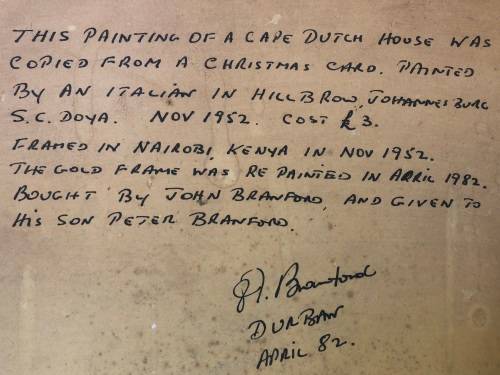 THIS PAINTING OF A CAPE DUTCH HOUSE WAS
COPIED FROM A CHRISTMAS CARD. PAINTED
BY AN ITALIAN IN HILLBROW, JOHANNESBURG
S.C. DOYA. NOV 1952. COST £3.
FRAMED IN NAIROBI, KENYA IN NOV 1952.
THE GOLD FRAME WAS RE PAINTED IN APRIL 1982.
BOUGHT BY JOHN BRANFORD, AND GIVEN TO
HIS SON PETER BRANFORD.
Branford
DURBAN
APRIL 82.